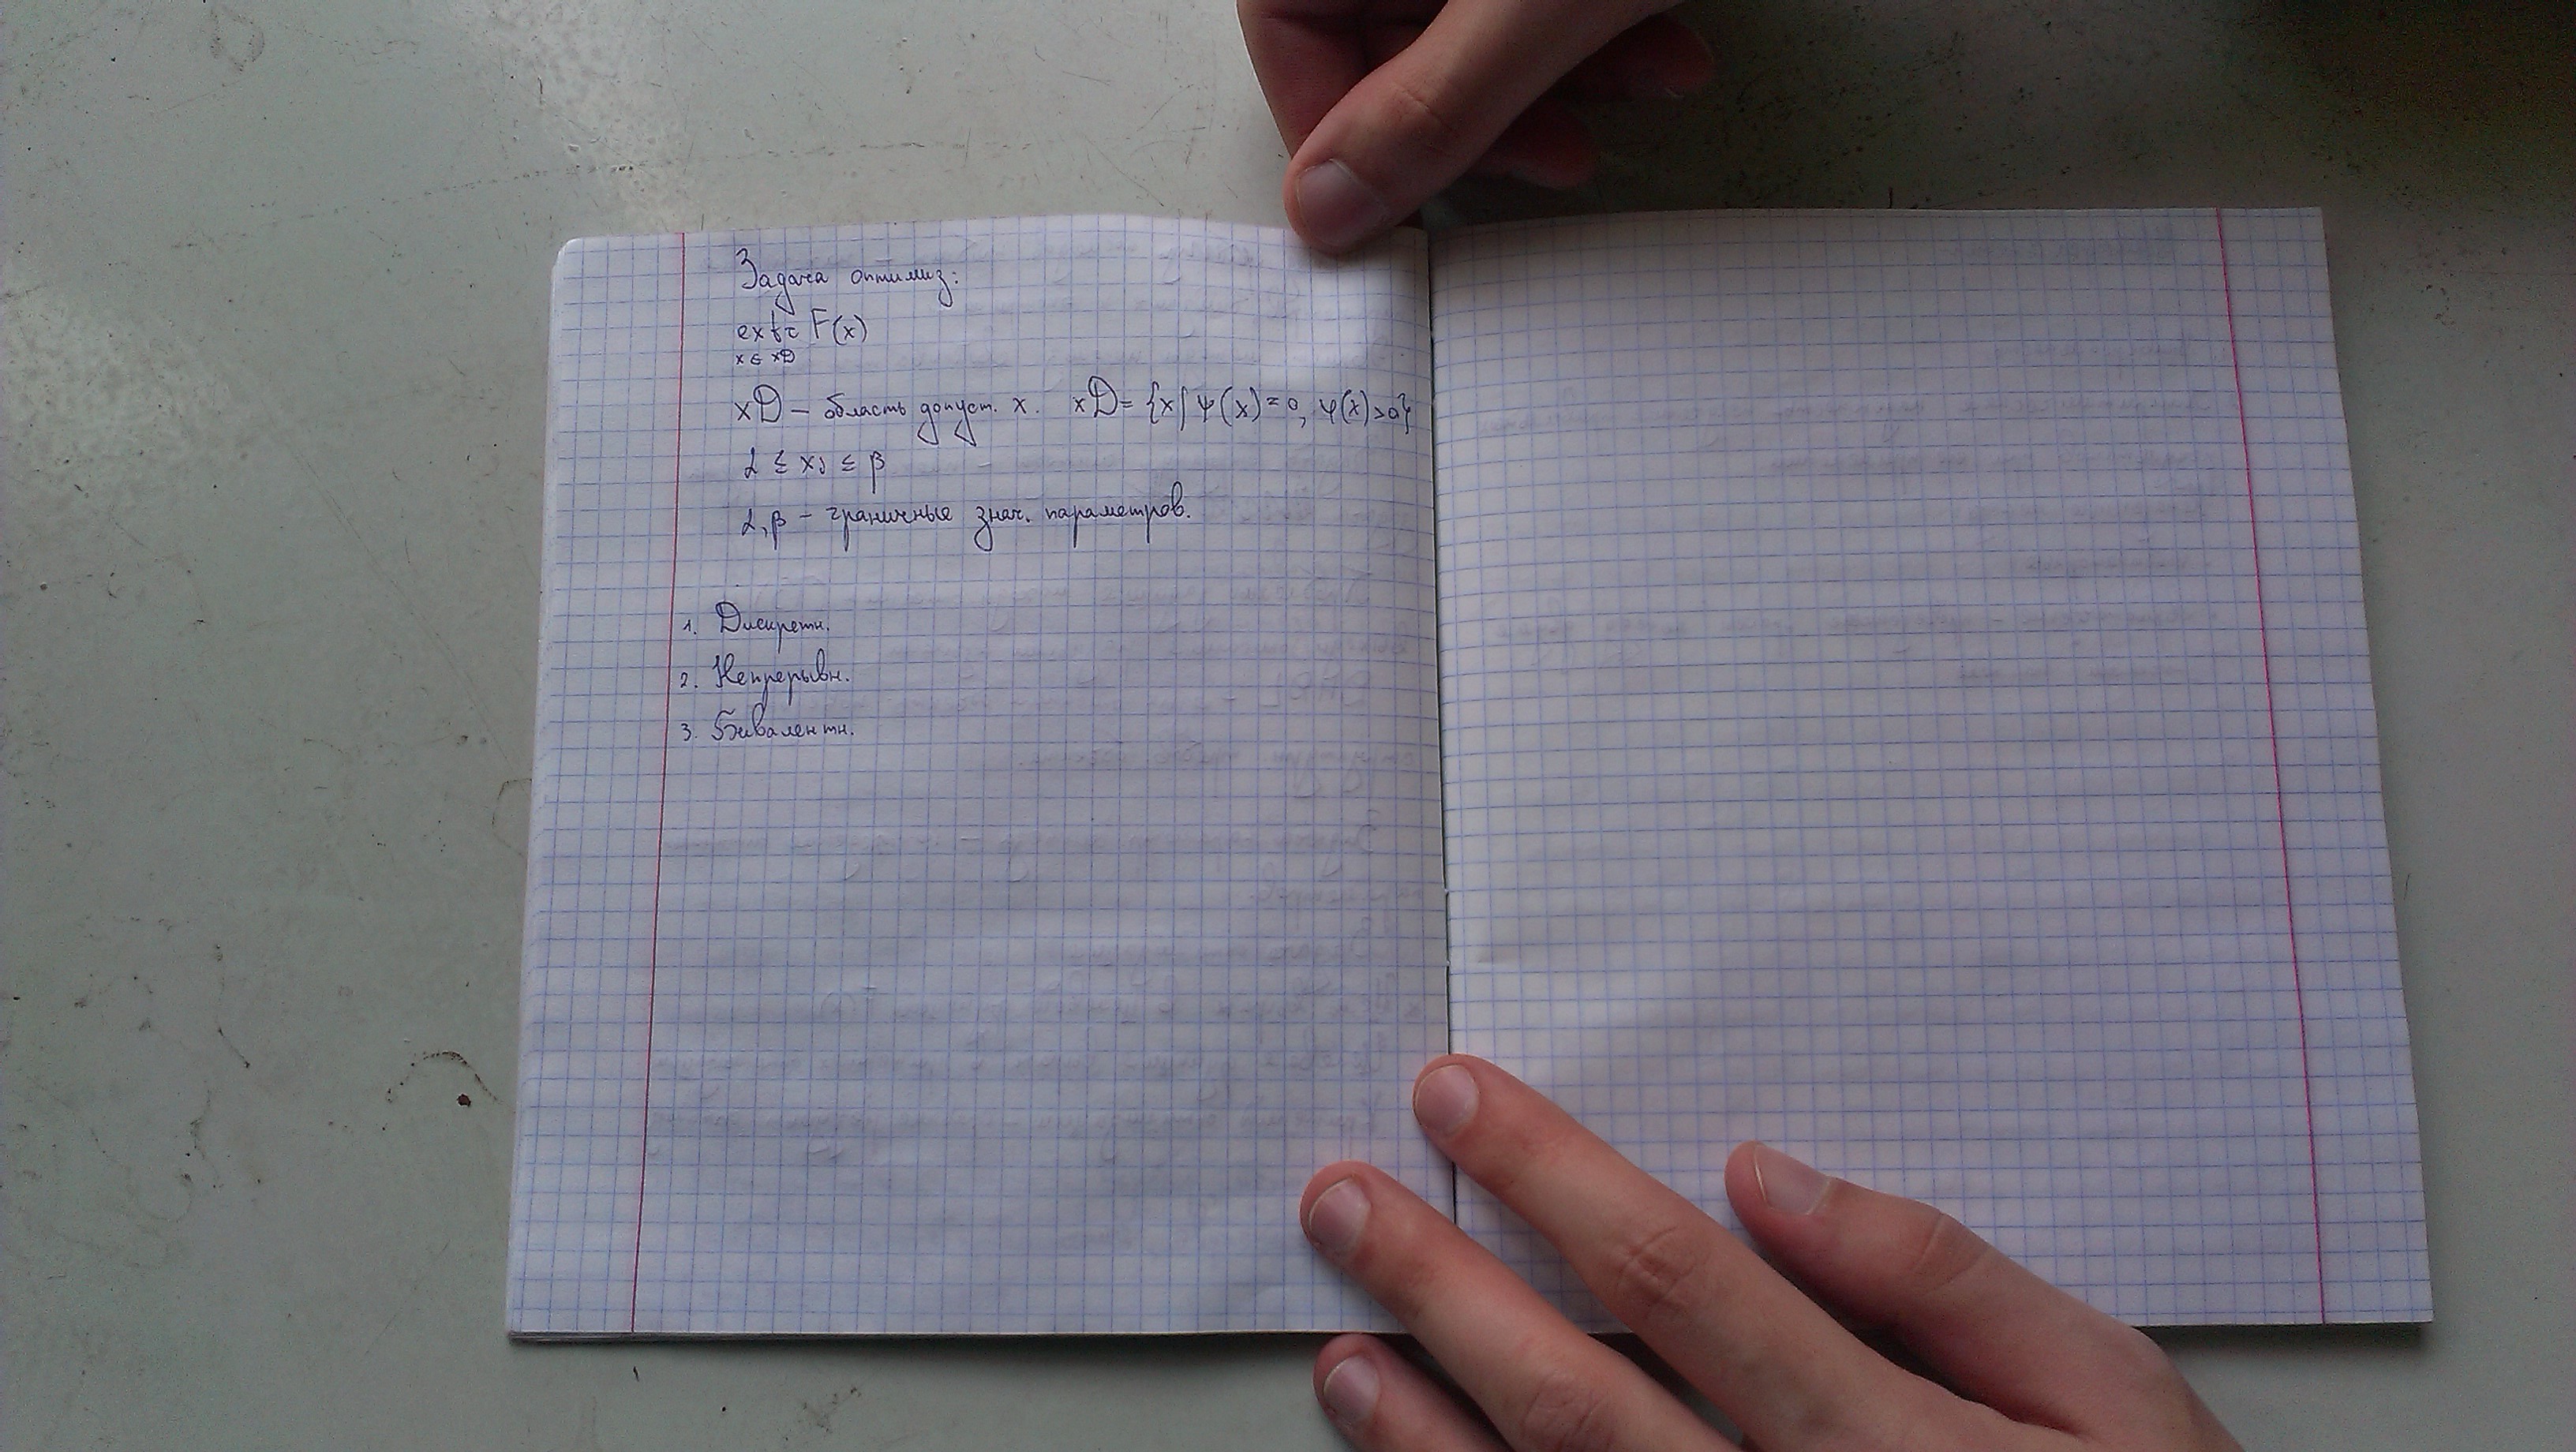 Задача оптимиз:
extr F(x)
x ∈ xD
xD – область допуст. x. xD = {x | ψ(x) = 0, φ(x) > 0}
α ≤ xj ≤ β
α, β – граничные знач. параметров.
1. Дискретн.
2. Непрерывн.
3. Бивалентн.